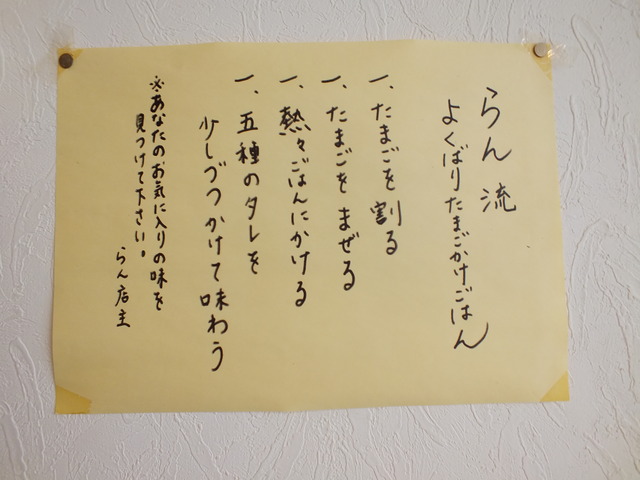 らん流
よくばりたまごかけごはん
一、たまごを割る
一、たまごをまぜる
一、熱々ごはんにかける
一、五種のタレを
少しづつかけて味わう
※あなたのお気に入りの味を
見つけて下さい。
らん店主